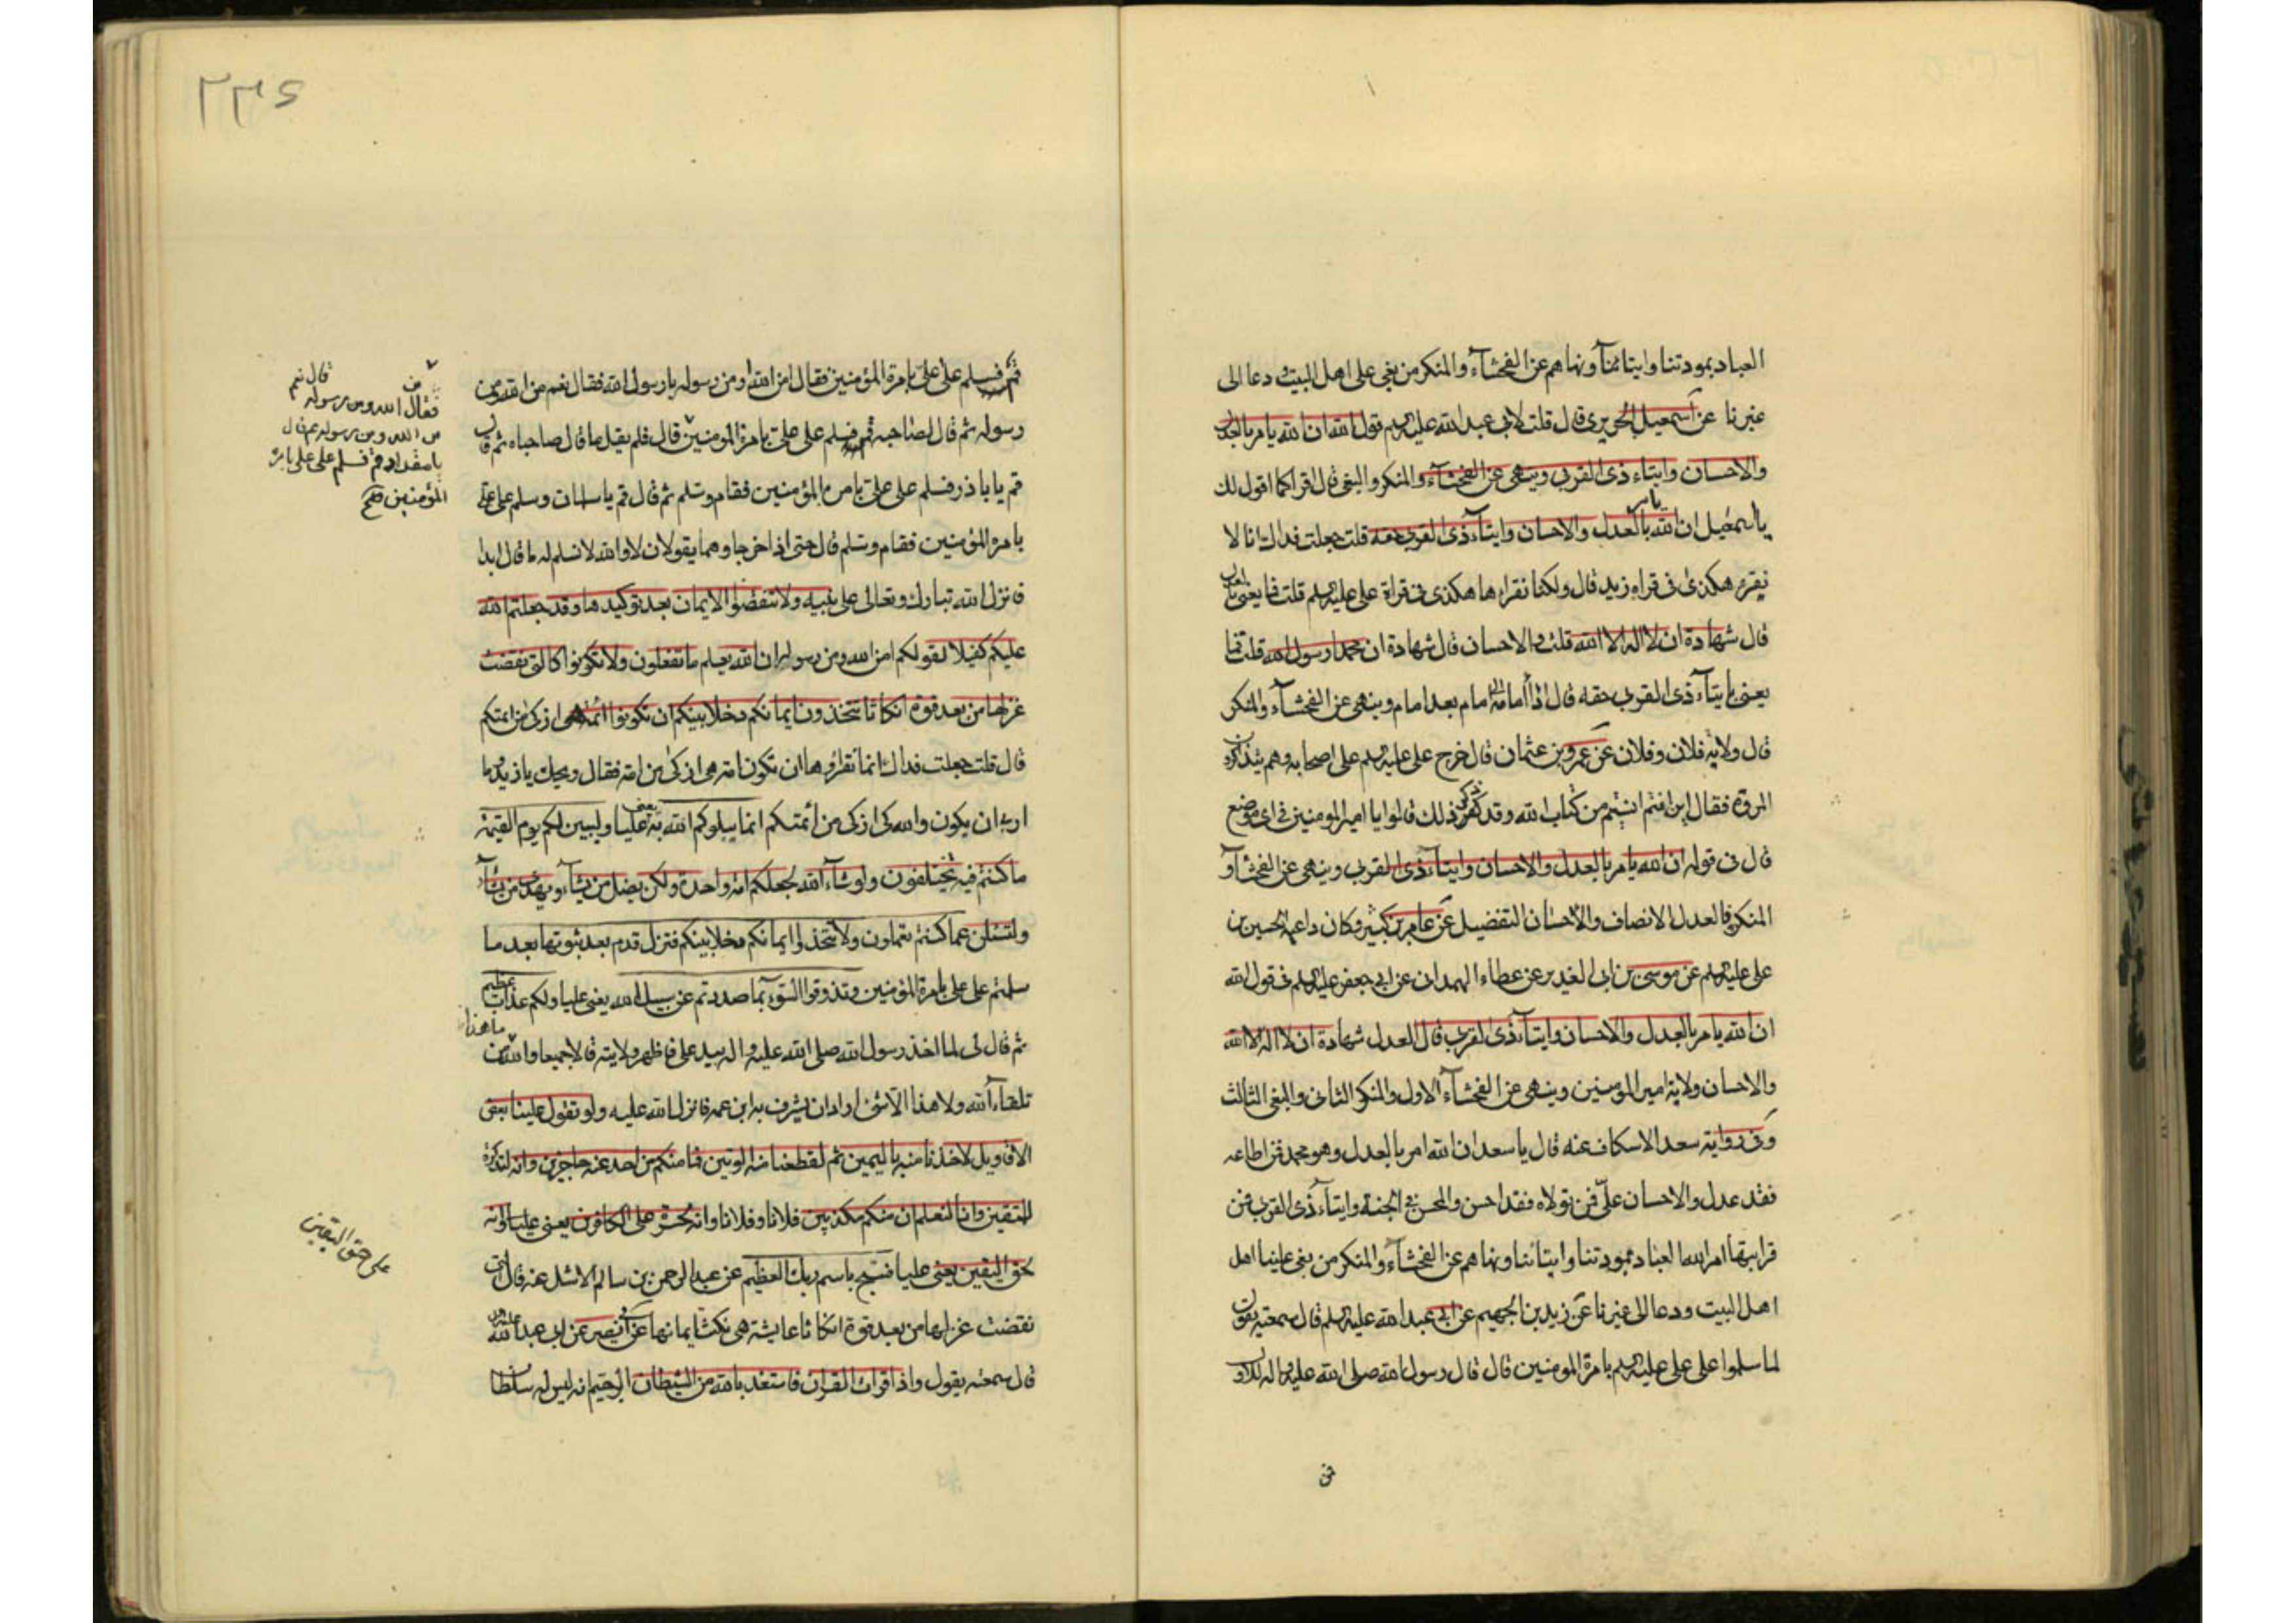 العباد بمودتنا وايتائنا ونهاهم عن الفحشآء والمنكر من بغى على اهل البيت دعا الى
غيرنا عن اسمعيل الحريرى قال قلت لابى عبد الله عليه السلم قول الله ان الله يامر بالعدل
والاحسان وايتاء ذى القربى وينهى عن الفحشآء والمنكر والبغى قال اقرا كما اقول لك
يا اسمعيل ان الله يامر بالعدل والاحسان وايتآء ذى القربى حقه قلت جعلت فداك انا لا
نقرء هكذى فى قراة زيد قال ولكنا نقراها هكذى فى قراة على عليه السلم قلت فما يعنى بالعدل
قال شهادة ان لا اله الا الله قلت والاحسان قال شهادة ان محمدا رسول الله قلت فما
يعنى بايتآء ذى القربى حقه قال اذآ امامة امام بعد امام وينهى عن الفحشآء والمنكر
قال ولاية فلان وفلان عن عمرو بن عثمان قال خرج على عليه السلم على اصحابه وهم يتذاكرون
المروة فقال اين انتم انسيتم من كتاب الله وقد ذكر ذلك قالوا يا امير المومنين فى اى موضع
قال فى قوله ان الله يامر بالعدل والاحسان وايتآء ذى القربى وينهى عن الفحشآء و
المنكر فالعدل الانصاف والاحسان التفضيل عن عامر بن كثير وكان داعية الحسين بن
على عليه السلم عن موسى بن ابى الغدير عن عطاء الهمدانى عن ابى جعفر عليه السلم فى قول الله
ان الله يامر بالعدل والاحسان وايتآء ذى القربى قال العدل شهادة ان لا اله الا الله
والاحسان ولاية امير المومنين وينهى عن الفحشآء الاول والمنكر الثانى والبغى الثالث
وفى رواية سعد الاسكاف عنه قال يا سعد ان الله امر بالعدل وهو محمد فمن اطاعه
فقد عدل والاحسان على فمن تولاه فقد احسن والمحسن فى الجنة وايتآء ذى القربى فمن
قرابتها امر الله العباد بمودتنا وايتائنا ونهاهم عن الفحشآء والمنكر من بغى علينا اهل
اهل البيت ودعا الى غيرنا عن زيد بن الجهيم عن ابى عبد الله عليه السلم قال سمعته يقول
لما سلموا على على عليه السلم بامرة المومنين قال قال رسول الله صلى الله عليه واله للاول
قم
٢٣٤
قم فسلم على على بامرة المؤمنين فقال امن الله او من رسوله يا رسول الله فقال نعم من الله ومن
رسوله ثم قال لصاحبه قم فسلم على على بامرة المومنين قال فلم يقل ما قال صاحباه ثم قال
قم يا باذر فسلم على على بامرة المؤمنين فقام وسلم ثم قال قم يا سلمان وسلم على على
بامرة المؤمنين فقام وسلم قال حتى اذا خرجا وهما يقولان لا والله لا نسلم له ما قال ابدا
فانزل الله تبارك وتعالى على نبيه ولا تنقضوا الايمان بعد توكيدها وقد جعلتم الله
عليكم كفيلا لقولكم امن الله ومن رسوله ان الله يعلم ما تفعلون ولا تكونوا كالتى نقضت
غزلها من بعد قوة انكاثا تتخذون ايمانكم دخلا بينكم ان تكونوا ائمة هى ازكى من ائمتكم
قال قلت جعلت فداك انما نقراوها ان تكون امة هى اربى من امة فقال ويحك يا زيد وما
اربى ان يكون والله ازكى من أئمتكم انما يبلوكم الله به يعنى عليا وليبين لكم يوم القيمة
ما كنتم فيه تختلفون ولو شآء الله لجعلكم امة واحدة ولكن يضل من يشآء ويهدى من يشآء
ولتسئلن عما كنتم تعملون ولا تتخذوا ايمانكم دخلا بينكم فتزل قدم بعد ثبوتها بعد ما
سلمتم على على بامرة المؤمنين وتذوقوا السوٓء بما صددتم عن سبيل الله يعنى عليا ولكم عذاب عظيم
ثم قال لى لما اخذ رسول الله صلى الله عليه واله بيد على فاظهر ولايته قالا جميعا والله ما هذا من
تلقآء الله ولا هذا الا شئ اراد ان يشرف به ابن عمه فانزل الله عليه ولو تقول علينا بعض
الاقاويل لاخذنا منه باليمين ثم لقطعنا منه الوتين فما منكم من احد عنه حاجزين وانه لتذكرة
للمتقين وانا لنعلم ان منكم مكذبين فلانا وفلانا وانه لحسرة على الكافرين يعنى عليا وانه
لحق اليقين يعنى عليا فسبح باسم ربك العظيم عن عبد الرحمن بن سالم الاشل عنه قال التى
نقضت غزلها من بعد قوة انكاثا عايشة هى نكثت ايمانها عن ابى بصير عن ابى عبد الله
قال سمعته يقول واذا قرات القران فاستعذ بالله من الشيطان الرجيم انه ليس له سلطان
قال نعم
فقال من الله ومن رسوله
من الله ومن رسوله ثم قال
يا مقداد قم فسلم على على بامرة
المؤمنين صح
على حق اليقين